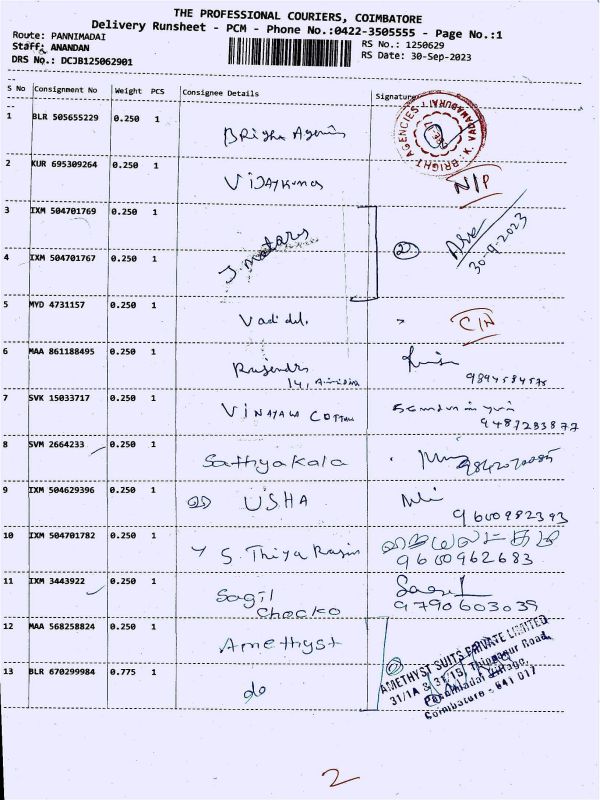 THE PROFESSIONAL COURIERS, COIMBATORE
Delivery Runsheet - PCM - Phone No.:0422-3505555 - Page No.:1
Route: PANNIMADAI
RS No.: 1250629
Staff: ANANDAN
RS Date: 30-Sep-2023
DRS No.: DCJB125062901
S No Consignment No Weight PCS Consignee Details Signature
1 BLR 505655229 0.250 1 Bright Agencies
BRIGHT AGENCIES K. VADAMADURAI
2 KUR 695309264 0.250 1 VIJAYKUMAR N/P
3 IXM 504701769 0.250 1
J. Motors 2 30-9-2023
4 IXM 504701767 0.250 1
5 MYD 4731157 0.250 1 C/N
6 MAA 861188495 0.250 1 Rajendra
14,
7 SVK 15033717 0.250 1 VINAYAGA COTTON
9487283877
8 SVM 2664233 0.250 1 Sathyakala
9 IXM 504629396 0.250 1 USHA
9600982393
10 IXM 504701782 0.250 1 S. Thiyarajan
9600962683
11 IXM 3443922 0.250 1 Sagil
Chacko 9790603039
12 MAA 568258824 0.250 1 Amethyst
13 BLR 670299984 0.775 1 do
AMETHYST SUITS PRIVATE LIMITED
31/1A & 31/1B, Thippanur Road,
Pannimadai Village,
Coimbatore - 641 017
2